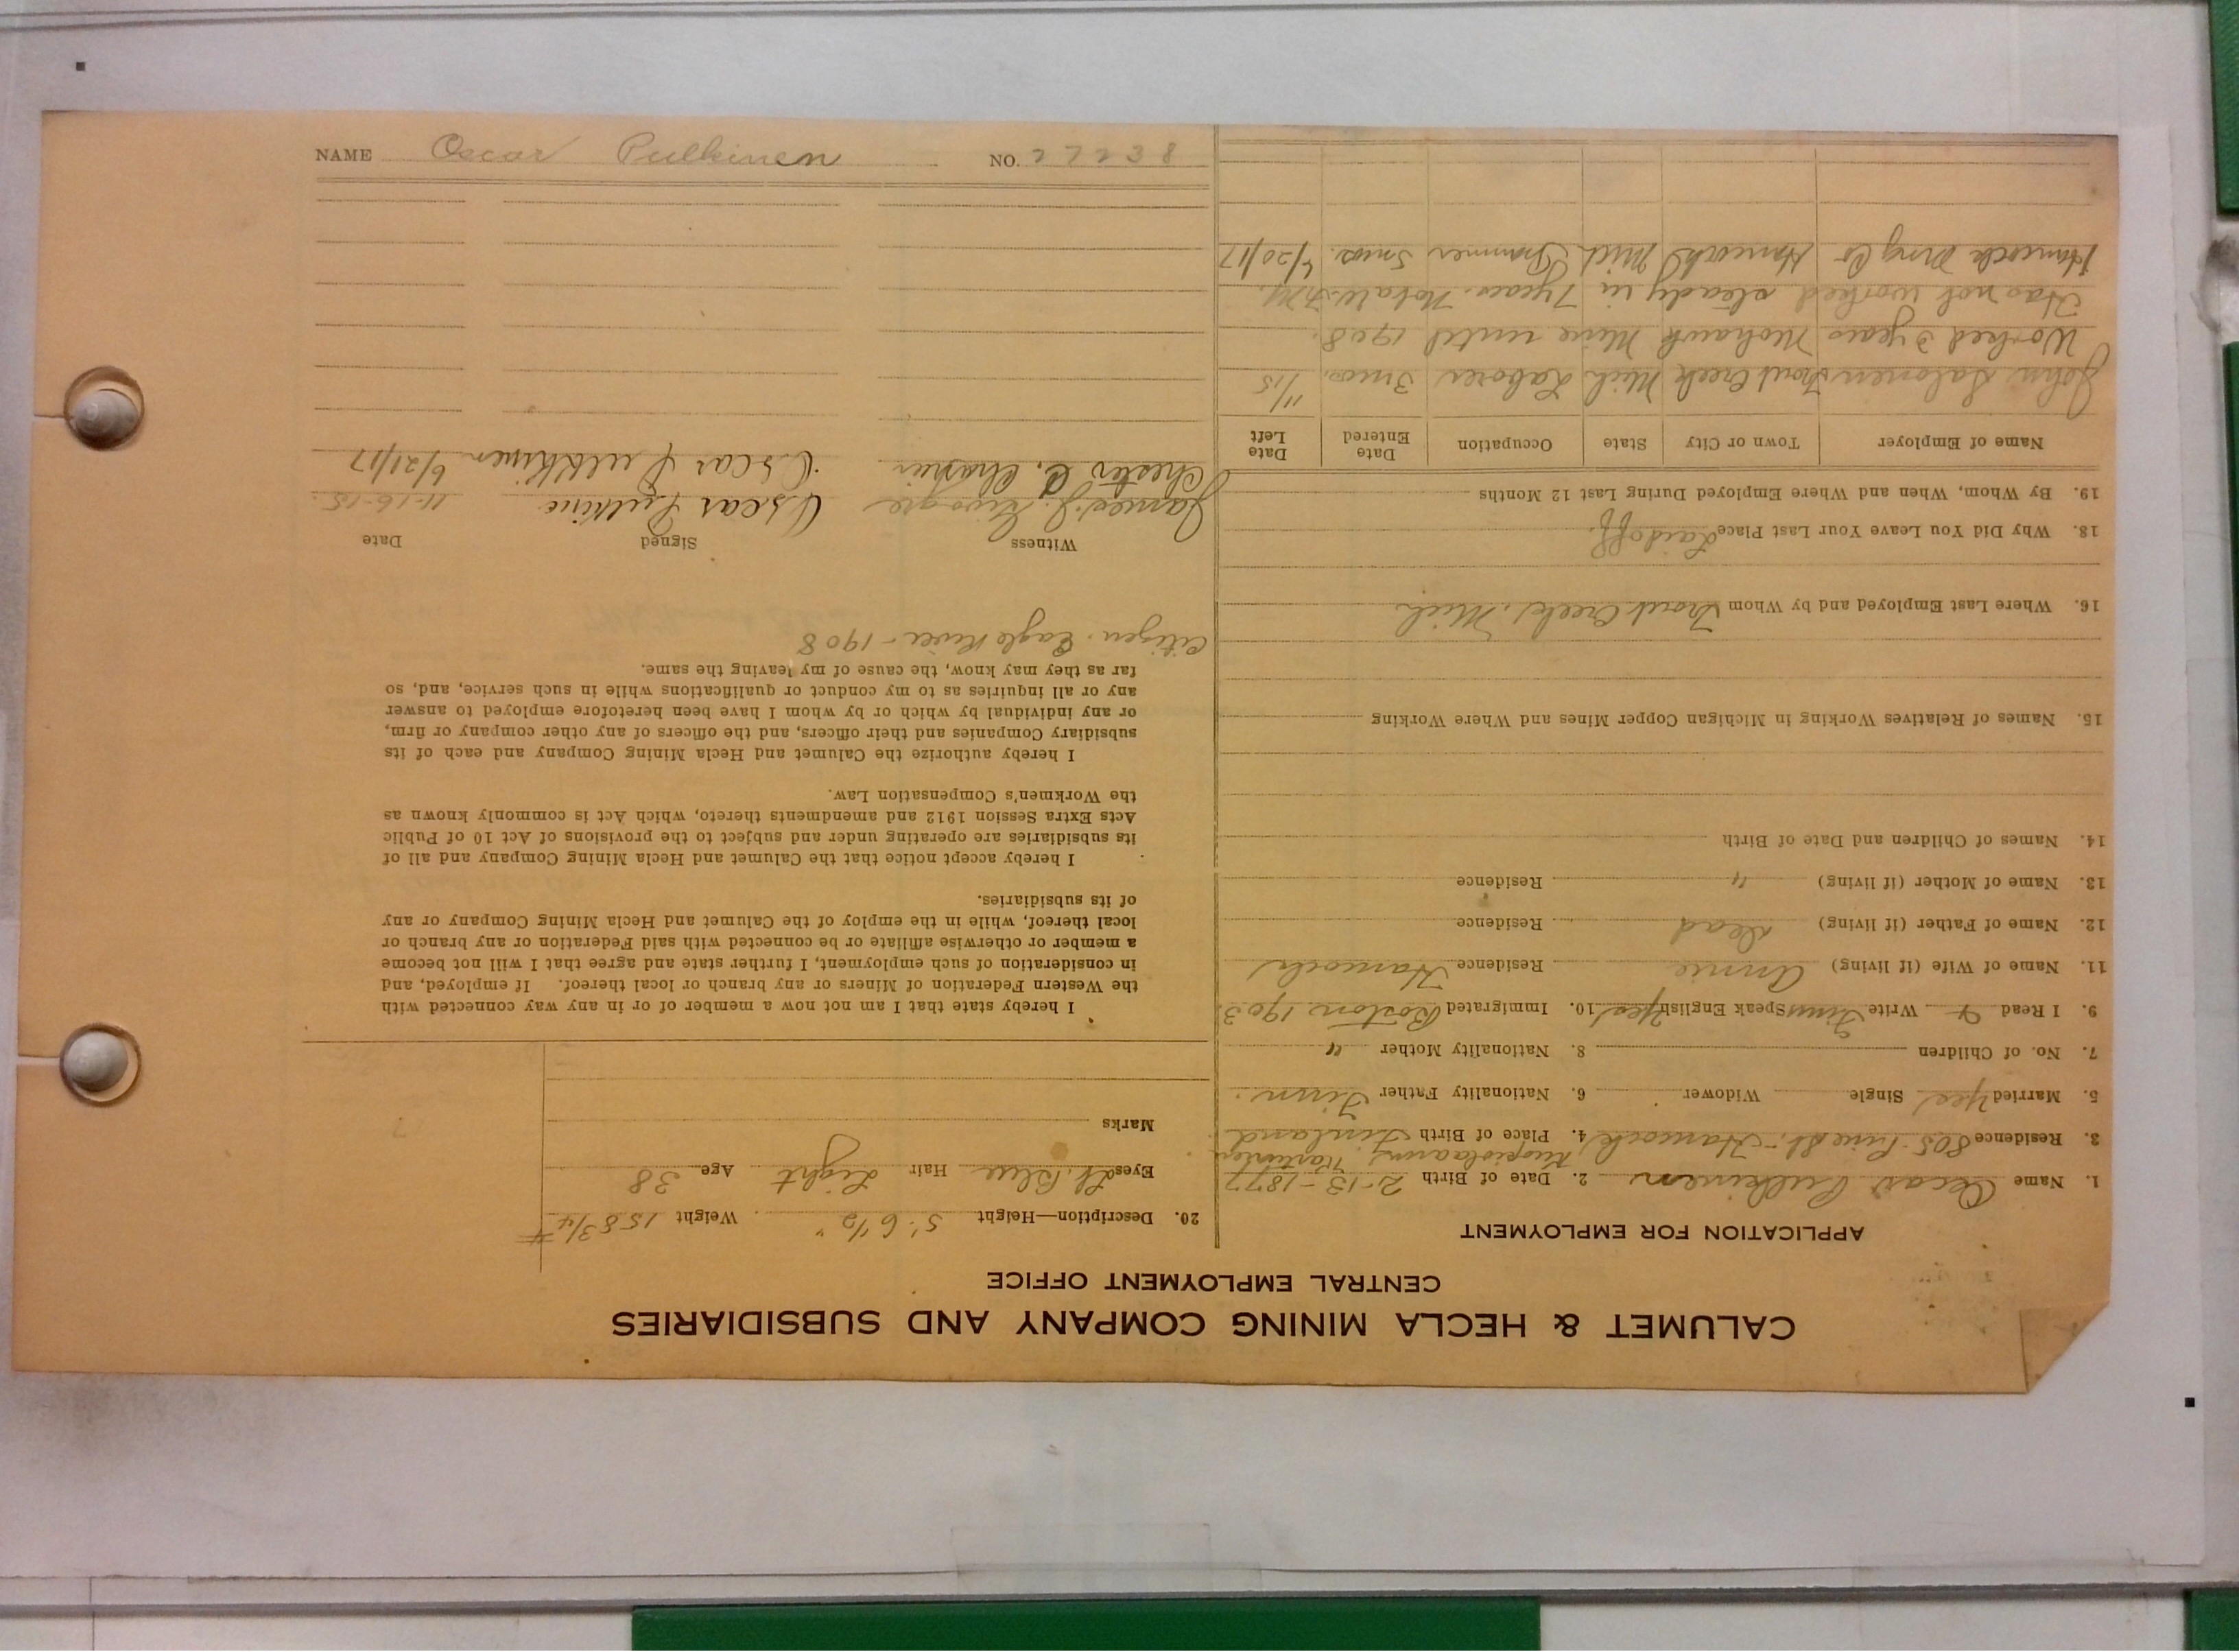 NAME Oscar Pulkinen NO. 27238
CALUMET & HECLA MINING COMPANY AND SUBSIDIARIES
CENTRAL EMPLOYMENT OFFICE
APPLICATION FOR EMPLOYMENT
1. Name Oscar Pulkinen 2. Date of Birth 2-13-1877
3. Residence 805 Pine St. Hancock 4. Place of Birth Finland
5. Married Yes Single Widower 6. Nationality Father Finn.
7. No. of Children 8. Nationality Mother "
9. I Read & Write Finn Speak English Yes 10. Immigrated Boston 1903.
11. Name of Wife (if living) Annie Residence Hancock
12. Name of Father (if living) Dead Residence
13. Name of Mother (if living) " Residence
14. Names of Children and Date of Birth
15. Names of Relatives Working in Michigan Copper Mines and Where Working
16. Where Last Employed and by Whom Trout Creek, Mich
18. Why Did You Leave Your Last Place Laid off.
19. By Whom, When and Where Employed During Last 12 Months
Name of Employer Town or City State Occupation Date Entered Date Left
John Salonen Trout Creek Mich Laborer 3 mos. 11/15
Worked 3 years Mohawk Mine until 1908.
Has not worked steady in 7 years.
Hancock Mng Co Hancock Mich Trammer 5 mos. 6/20/17
20. Description—Height 5' 6 1/2" Weight 158 3/4 #
Eyes Lt. Blue Hair Light Age 38
Marks
I hereby state that I am not now a member of or in any way connected with
the Western Federation of Miners or any branch or local thereof. If employed, and
in consideration of such employment, I further state and agree that I will not become
a member or otherwise affiliate or be connected with said Federation or any branch or
local thereof, while in the employ of the Calumet and Hecla Mining Company or any
of its subsidiaries.
I hereby accept notice that the Calumet and Hecla Mining Company and all of
its subsidiaries are operating under and subject to the provisions of Act 10 of Public
Acts Extra Session 1912 and amendments thereto, which Act is commonly known as
the Workmen's Compensation Law.
I hereby authorize the Calumet and Hecla Mining Company and each of its
subsidiary Companies and their officers, and the officers of any other company or firm,
or any individual by which or by whom I have been heretofore employed to answer
any or all inquiries as to my conduct or qualifications while in such service, and, so
far as they may know, the cause of my leaving the same.
Citizen. Eagle River - 1908
Witness Signed Date
James J. Oscar Pulkine 11-16-15.
Chester C. Oscar Pulkkinen 6/21/17